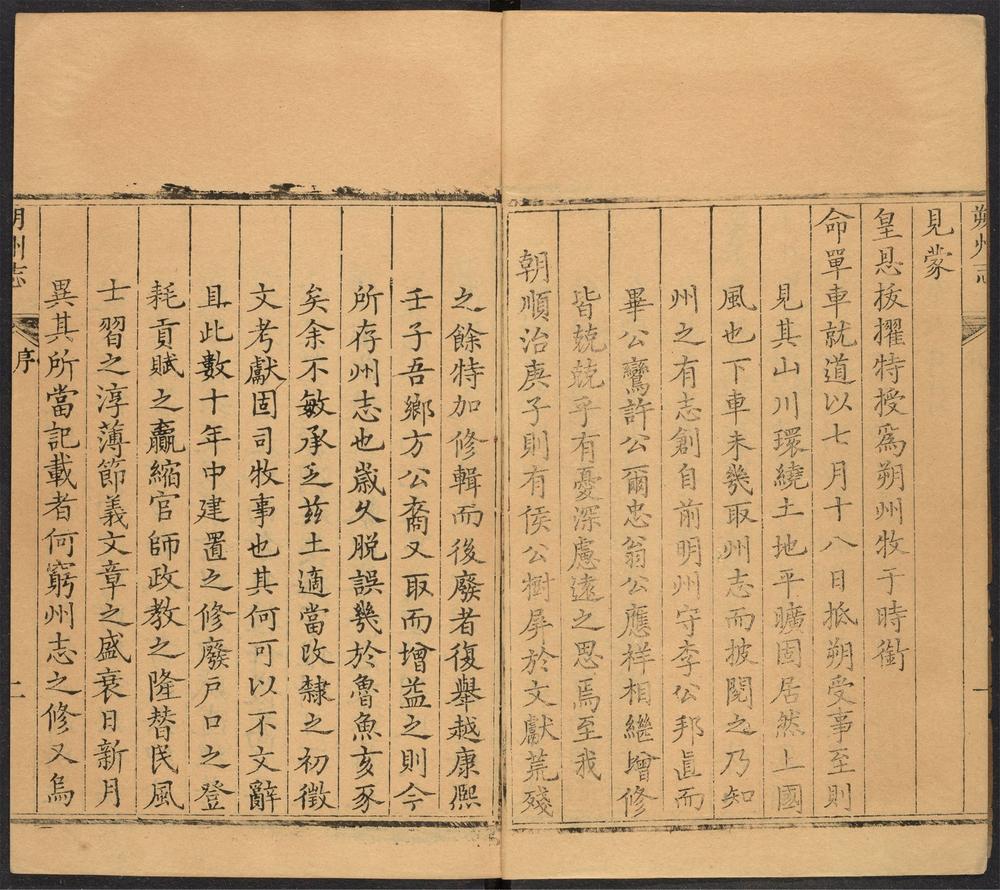 朔州志
見蒙
皇恩拔擢特授爲朔州牧于時銜
命單車就道以七月十八日抵朔受事至則
見其山川環繞土地平曠固居然上國
風也下車未幾取州志而披閱之乃知
州之有志創自前明州守李公邦直而
畢公鸞許公爾忠翁公應祥相繼增修
皆兢兢乎有憂深慮遠之思焉至我
朝順治庚子則有侯公樹屏於文獻荒殘
之餘特加修輯而後廢者復舉越康熈
壬子吾鄉方公裔又取而增益之則今
所存州志也嵗久脱誤幾於魯魚亥豕
矣余不敏承乏兹土適當改隸之初徵
文考獻固司牧事也其何可以不文辭
且此數十年中建置之修廢戸口之登
耗貢賦之贏縮官師政教之隆替民風
士習之淳薄節義文章之盛衰日新月
異其所當記載者何窮州志之修又烏
朔州志
序
二